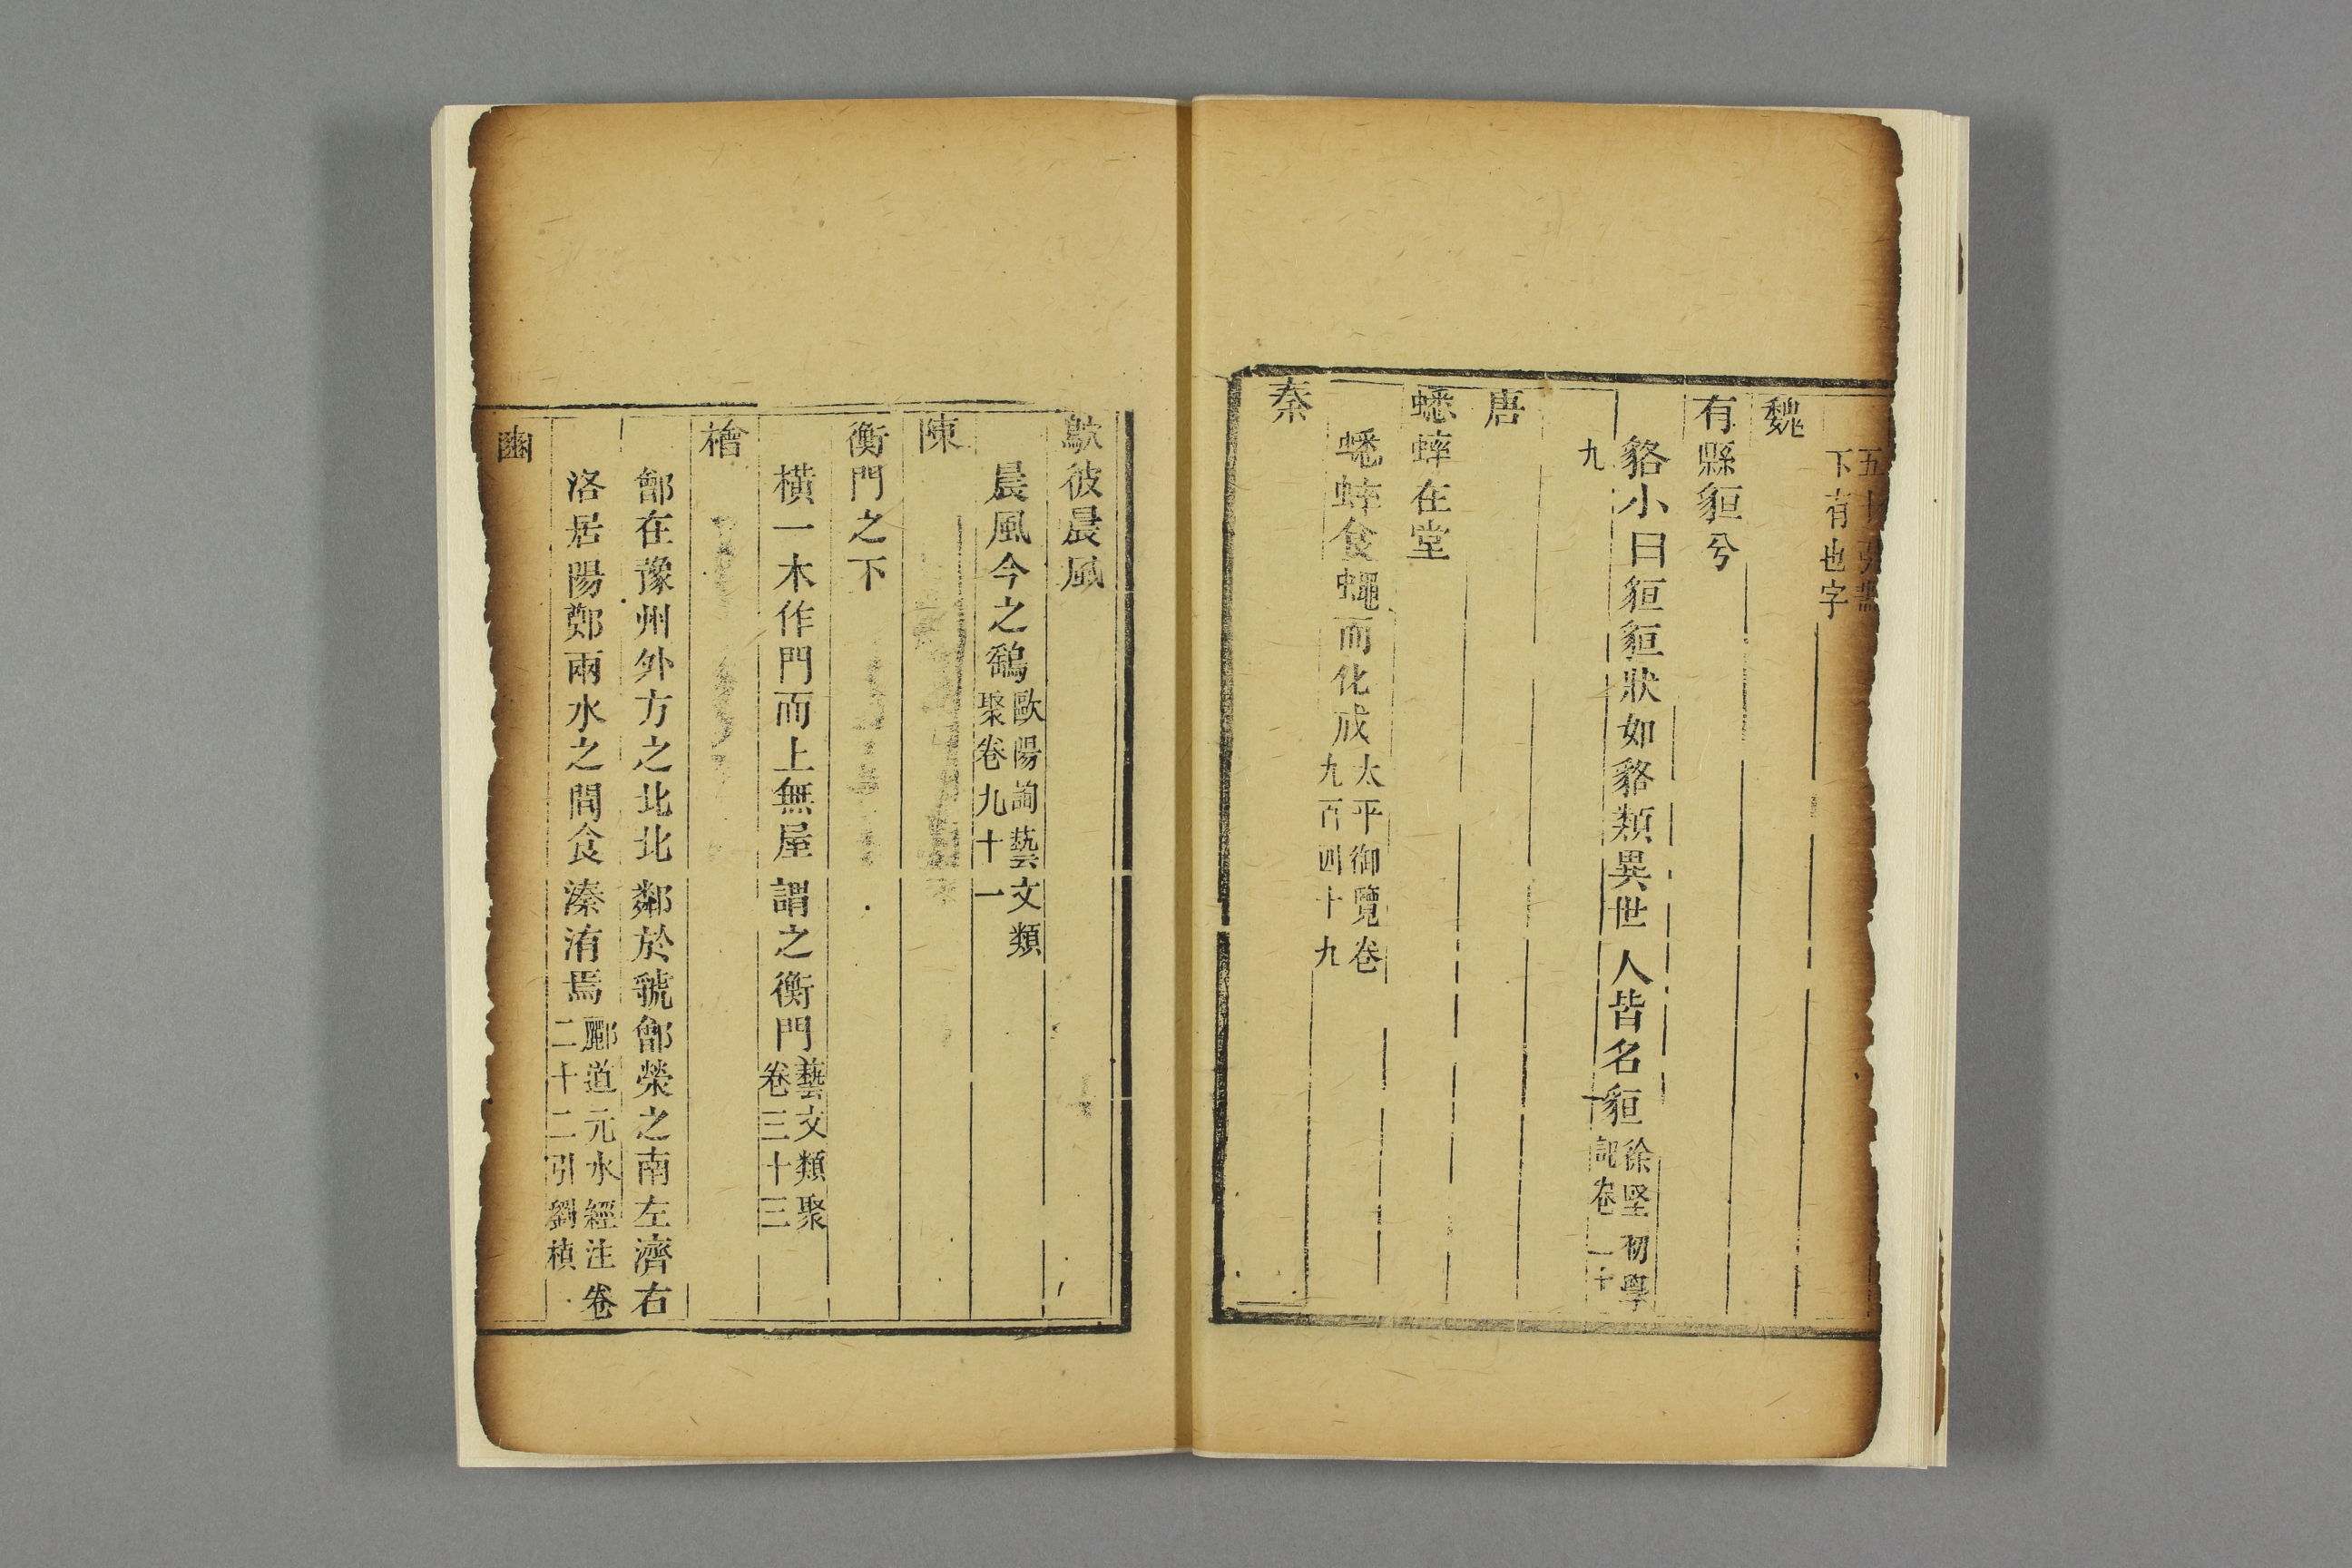 五十引無
下有也字
魏
有縣貆兮
貉小曰貆貆狀如貉類異世人皆名貆徐堅初學記卷二十
九
唐
蟋蟀在堂
蟋蟀食蠅而化成太平御覽卷九百四十九
秦
鴥彼晨風
晨風今之鷂歐陽詢藝文類聚卷九十一
陳
衡門之下
橫一木作門而上無屋謂之衡門藝文類聚卷三十三
檜
鄶在豫州外方之北北鄰於虢鄶滎之南左濟右
洛居陽鄭兩水之間食溱洧焉酈道元水經注卷二十二引劉楨
豳